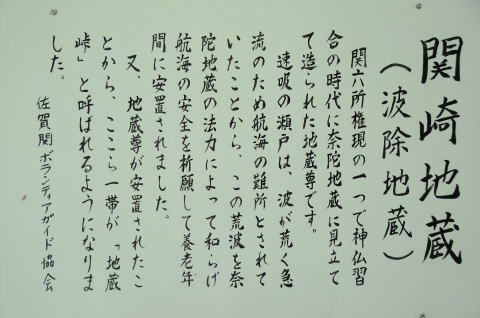 関崎地蔵
（波除地蔵）
関六所権現の一つで神仏習
合の時代に奈陀地蔵に見立て
て造られた地蔵尊です。
速吸の瀬戸は、波が荒く急
流のため航海の難所とされて
いたことから、この荒波を奈
陀地蔵の法力によって和らげ
航海の安全を祈願して養老年
間に安置されました。
又、地蔵尊が安置されたこ
とから、ここら一帯が「地蔵
峠」と呼ばれるようになりま
した。
佐賀関ボランティアガイド協会